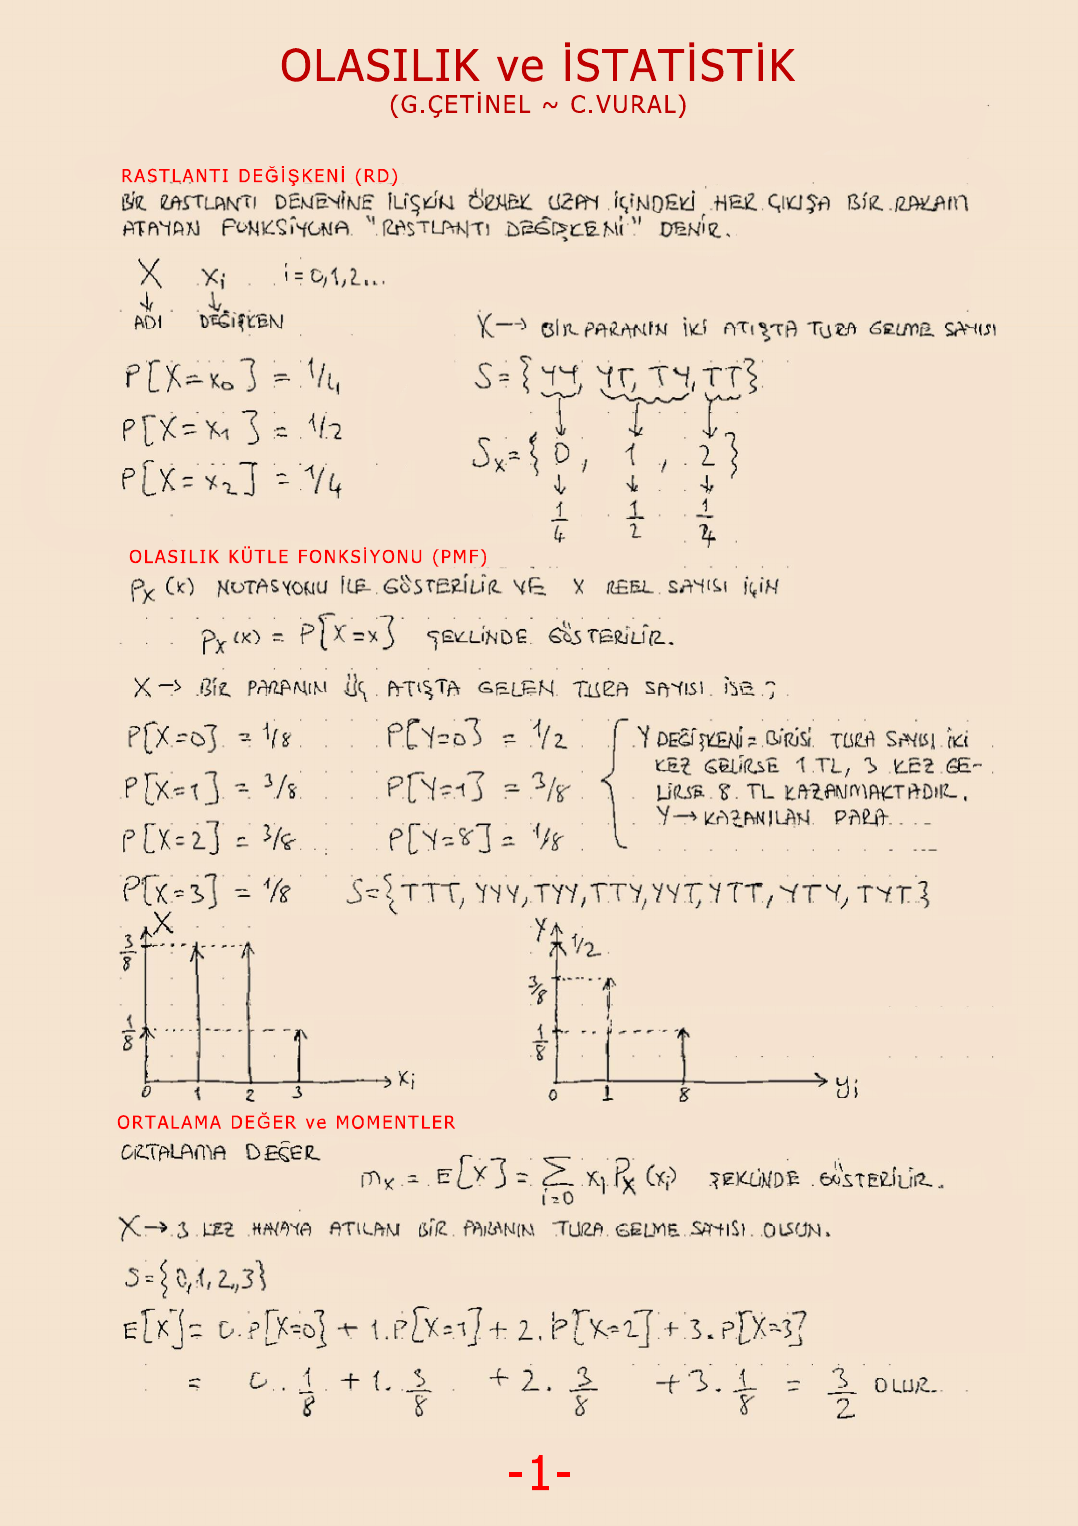 OLASILIK ve İSTATİSTİK
(G.ÇETİNEL ~ C.VURAL)
RASTLANTI DEĞİŞKENİ (RD)
BİR RASTLANTI DENEYİNE İLİŞKİN ÖRNEK UZAY İÇİNDEKİ HER ÇIKIŞA BİR RAKAM
ATAYAN FONKSİYONA "RASTLANTI DEĞİŞKENİ" DENİR.
X xᵢ i=0,1,2...
↓ ↓
ADI DEĞİŞKEN
X → BİR PARANIN İKİ ATIŞTA TURA GELME SAYISI
P[X=x₀] = 1/4 S={YY, YT, TY, TT}
P[X=x₁] = 1/2
Sₓ={0, 1, 2}
P[X=x₂] = 1/4
1/4 1/2 1/4
OLASILIK KÜTLE FONKSİYONU (PMF)
Pₓ(x) NOTASYONU İLE GÖSTERİLİR VE X REEL SAYISI İÇİN
Pₓ(x) = P[X=x] ŞEKLİNDE GÖSTERİLİR.
X → BİR PARANIN ÜÇ ATIŞTA GELEN TURA SAYISI İSE;
P[X=0] = 1/8 P[Y=0] = 1/2 { Y DEĞİŞKENİ = BİRİSİ TURA SAYISI İKİ
KEZ GELİRSE 1 TL, 3 KEZ GE-
P[X=1] = 3/8 P[Y=1] = 3/8 LİRSE 8 TL KAZANMAKTADIR.
Y → KAZANILAN PARA
P[X=2] = 3/8 P[Y=8] = 1/8
P[X=3] = 1/8 S={TTT, YYY, TYY, TTY, YYT, YTT, YTY, TYT}
X Y 1/2
3/8 3/8
1/8 1/8
0 1 2 3 xᵢ 0 1 8 yᵢ
ORTALAMA DEĞER ve MOMENTLER
ORTALAMA DEĞER
mₓ = E[X] = Σ xᵢ Pₓ(xᵢ) ŞEKLİNDE GÖSTERİLİR.
i=0
X → 3 KEZ HAVAYA ATILAN BİR PARANIN TURA GELME SAYISI OLSUN.
S={0,1,2,,3}
E[X] = 0.P[X=0] + 1.P[X=1] + 2.P[X=2] + 3.P[X=3]
= 0. 1/8 + 1. 3/8 + 2. 3/8 + 3. 1/8 = 3/2 OLUR.
-1-